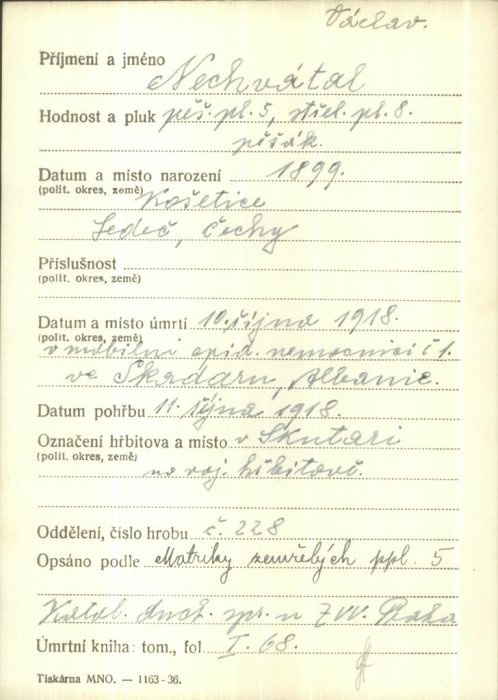 Václav.
Příjmení a jméno Nechvátal
Hodnost a pluk pěš. pl. 5, střel. pl. 8.
pěšák.
Datum a místo narození 1899.
(polit. okres, země) Košetice
Sedeč, Čechy
Příslušnost
(polit. okres, země)
Datum a místo úmrtí 10. října 1918.
(polit. okres, země)
v mobilní epid. nemocnici č 1.
ve Skadaru, Albanie.
Datum pohřbu 11. října 1918.
Označení hřbitova a místo v Skutari
(polit. okres, země)
na voj. hřbitově.
Oddělení, číslo hrobu č. 228
Opsáno podle Matriky zemřelých ppl. 5
Katol. duch. spr. u ZVV. Praha
Úmrtní kniha: tom., fol I. 68.
Tiskárna MNO. — 1163-36.